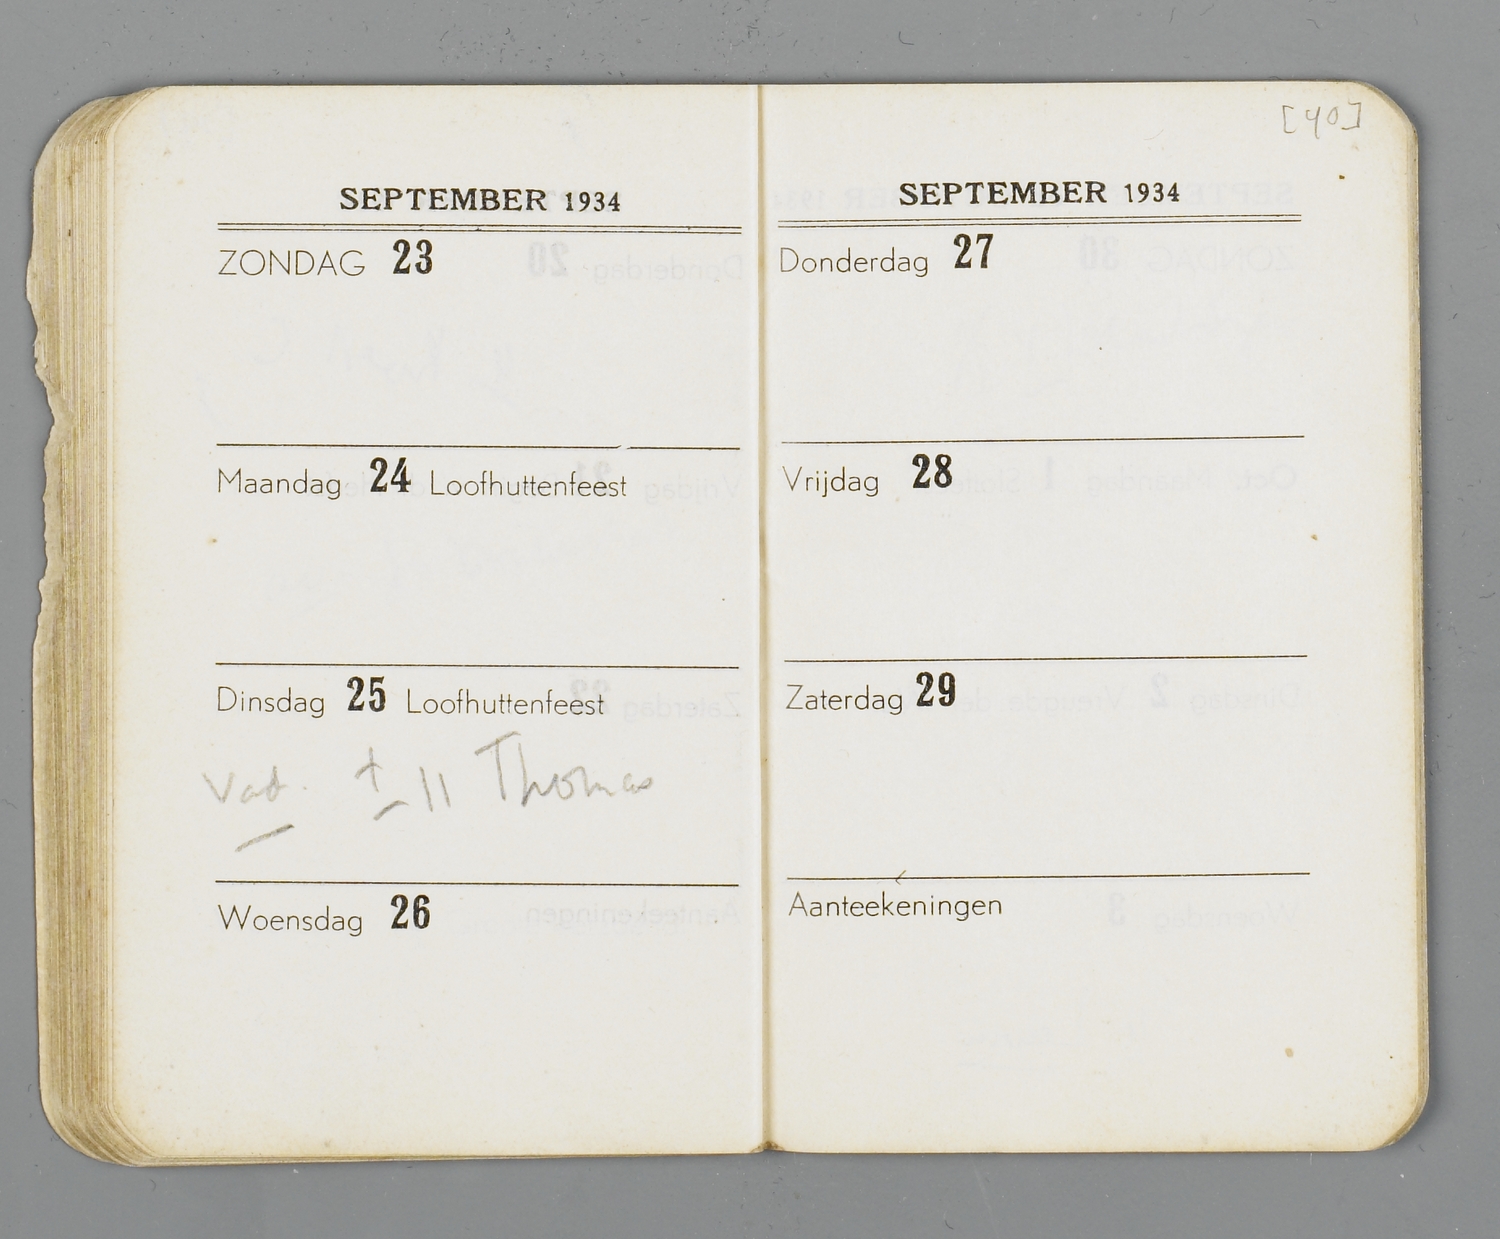 SEPTEMBER 1934
ZONDAG 23
Maandag 24 Loofhuttenfeest
Dinsdag 25 Loofhuttenfeest
Vad. ± 11 Thomas
Woensdag 26
[40]
SEPTEMBER 1934
Donderdag 27
Vrijdag 28
Zaterdag 29
Aanteekeningen